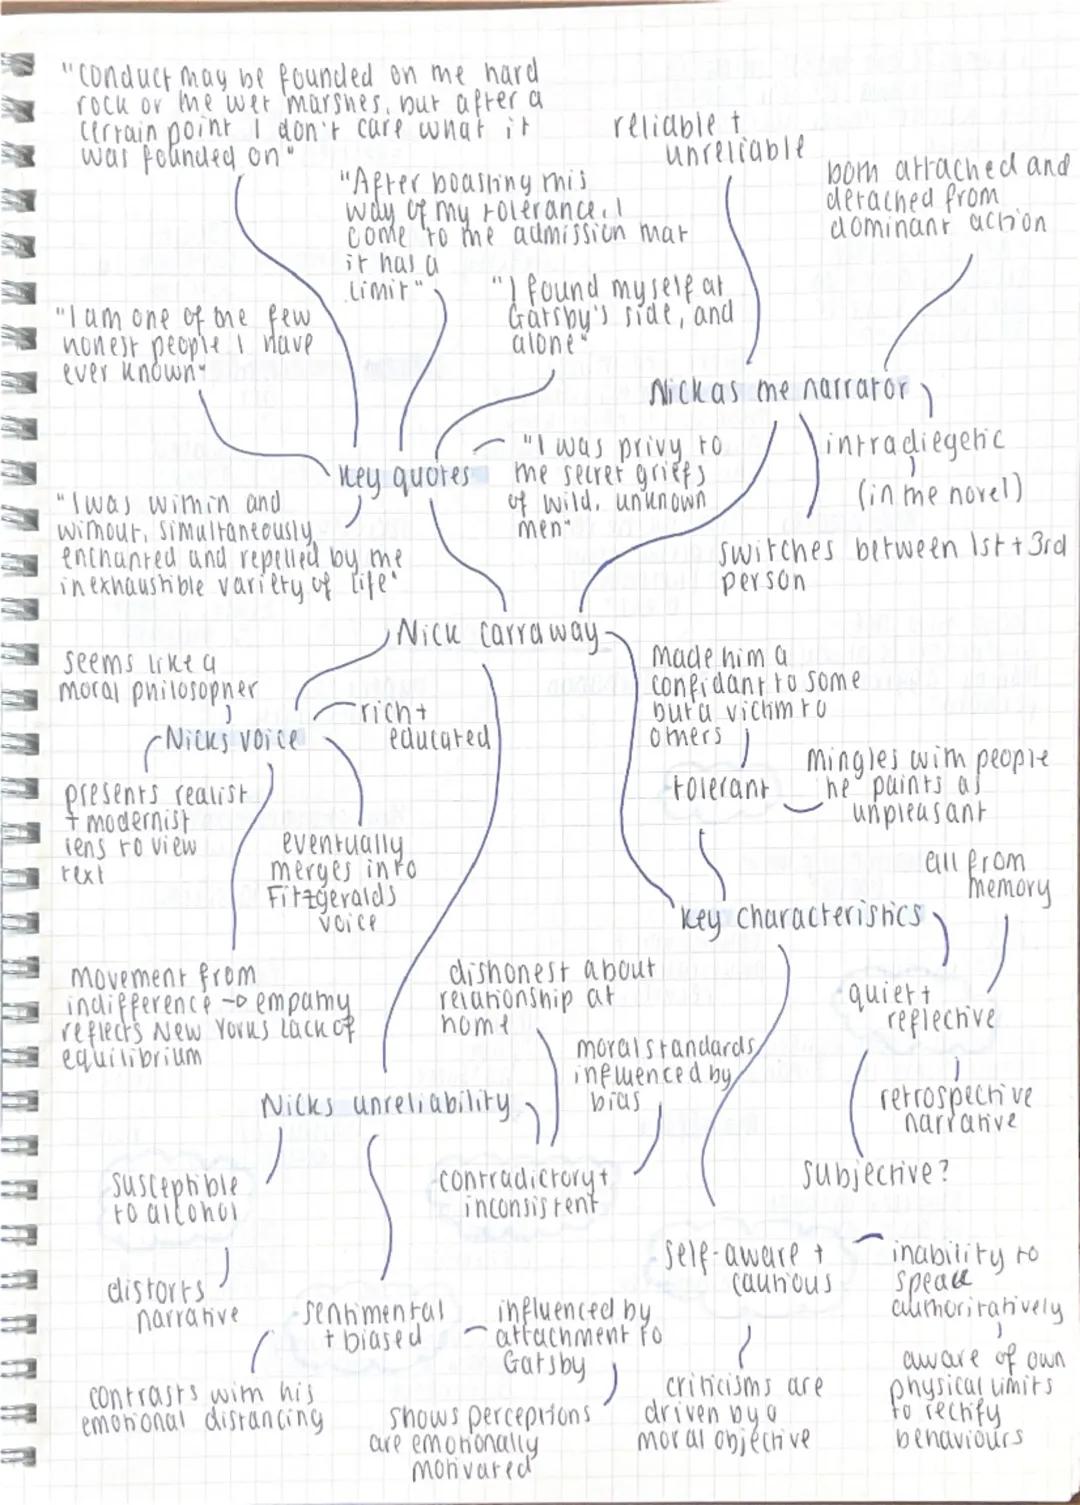 "Conduct may be founded on the hard
rock or the wet marshes, but after a
certain point I don't care what it
was founded on"
reliable +
unreliable
both attached and
detached from
dominant action
"After boasting this
way of my tolerance, I
come to the admission that
it has a
limit"
"I found myself at
Gatsby's side, and
alone"
"I am one of the few
honest people I have
ever known"
Nick as the narrator
intradiegetic
(in the novel)
switches between 1st + 3rd
person
Key quotes
"I was privy to
the secret griefs
of wild, unknown
men"
"I was within and
without, simultaneously
enchanted and repelled by the
inexhaustible variety of life"
Nick Carraway
seems like a
moral philosopher
Nicks voice
rich +
educated
presents realist
+ modernist
lens to view
text
eventually
merges into
Fitzgeralds
voice
movement from
indifference → empathy
reflects New Yorks lack of
equilibrium
made him a
confidant to some
but a victim to
others
tolerant
Mingles with people
he paints as
unpleasant
Key characteristics
all from
memory
quiet +
reflective
retrospective
narrative
subjective?
dishonest about
relationship at
home
moral standards
influenced by
bias
Nicks unreliability
contradictory +
inconsistent
susceptible
to alcohol
distorts
narrative
sentimental
+ biased
influenced by
attachment to
Gatsby
contrasts with his
emotional distancing
shows perceptions
are emotionally
motivated
self-aware +
cautious
inability to
speak
authoritatively
criticisms are
driven by a
moral objective
aware of own
physical limits
to rectify
behaviours